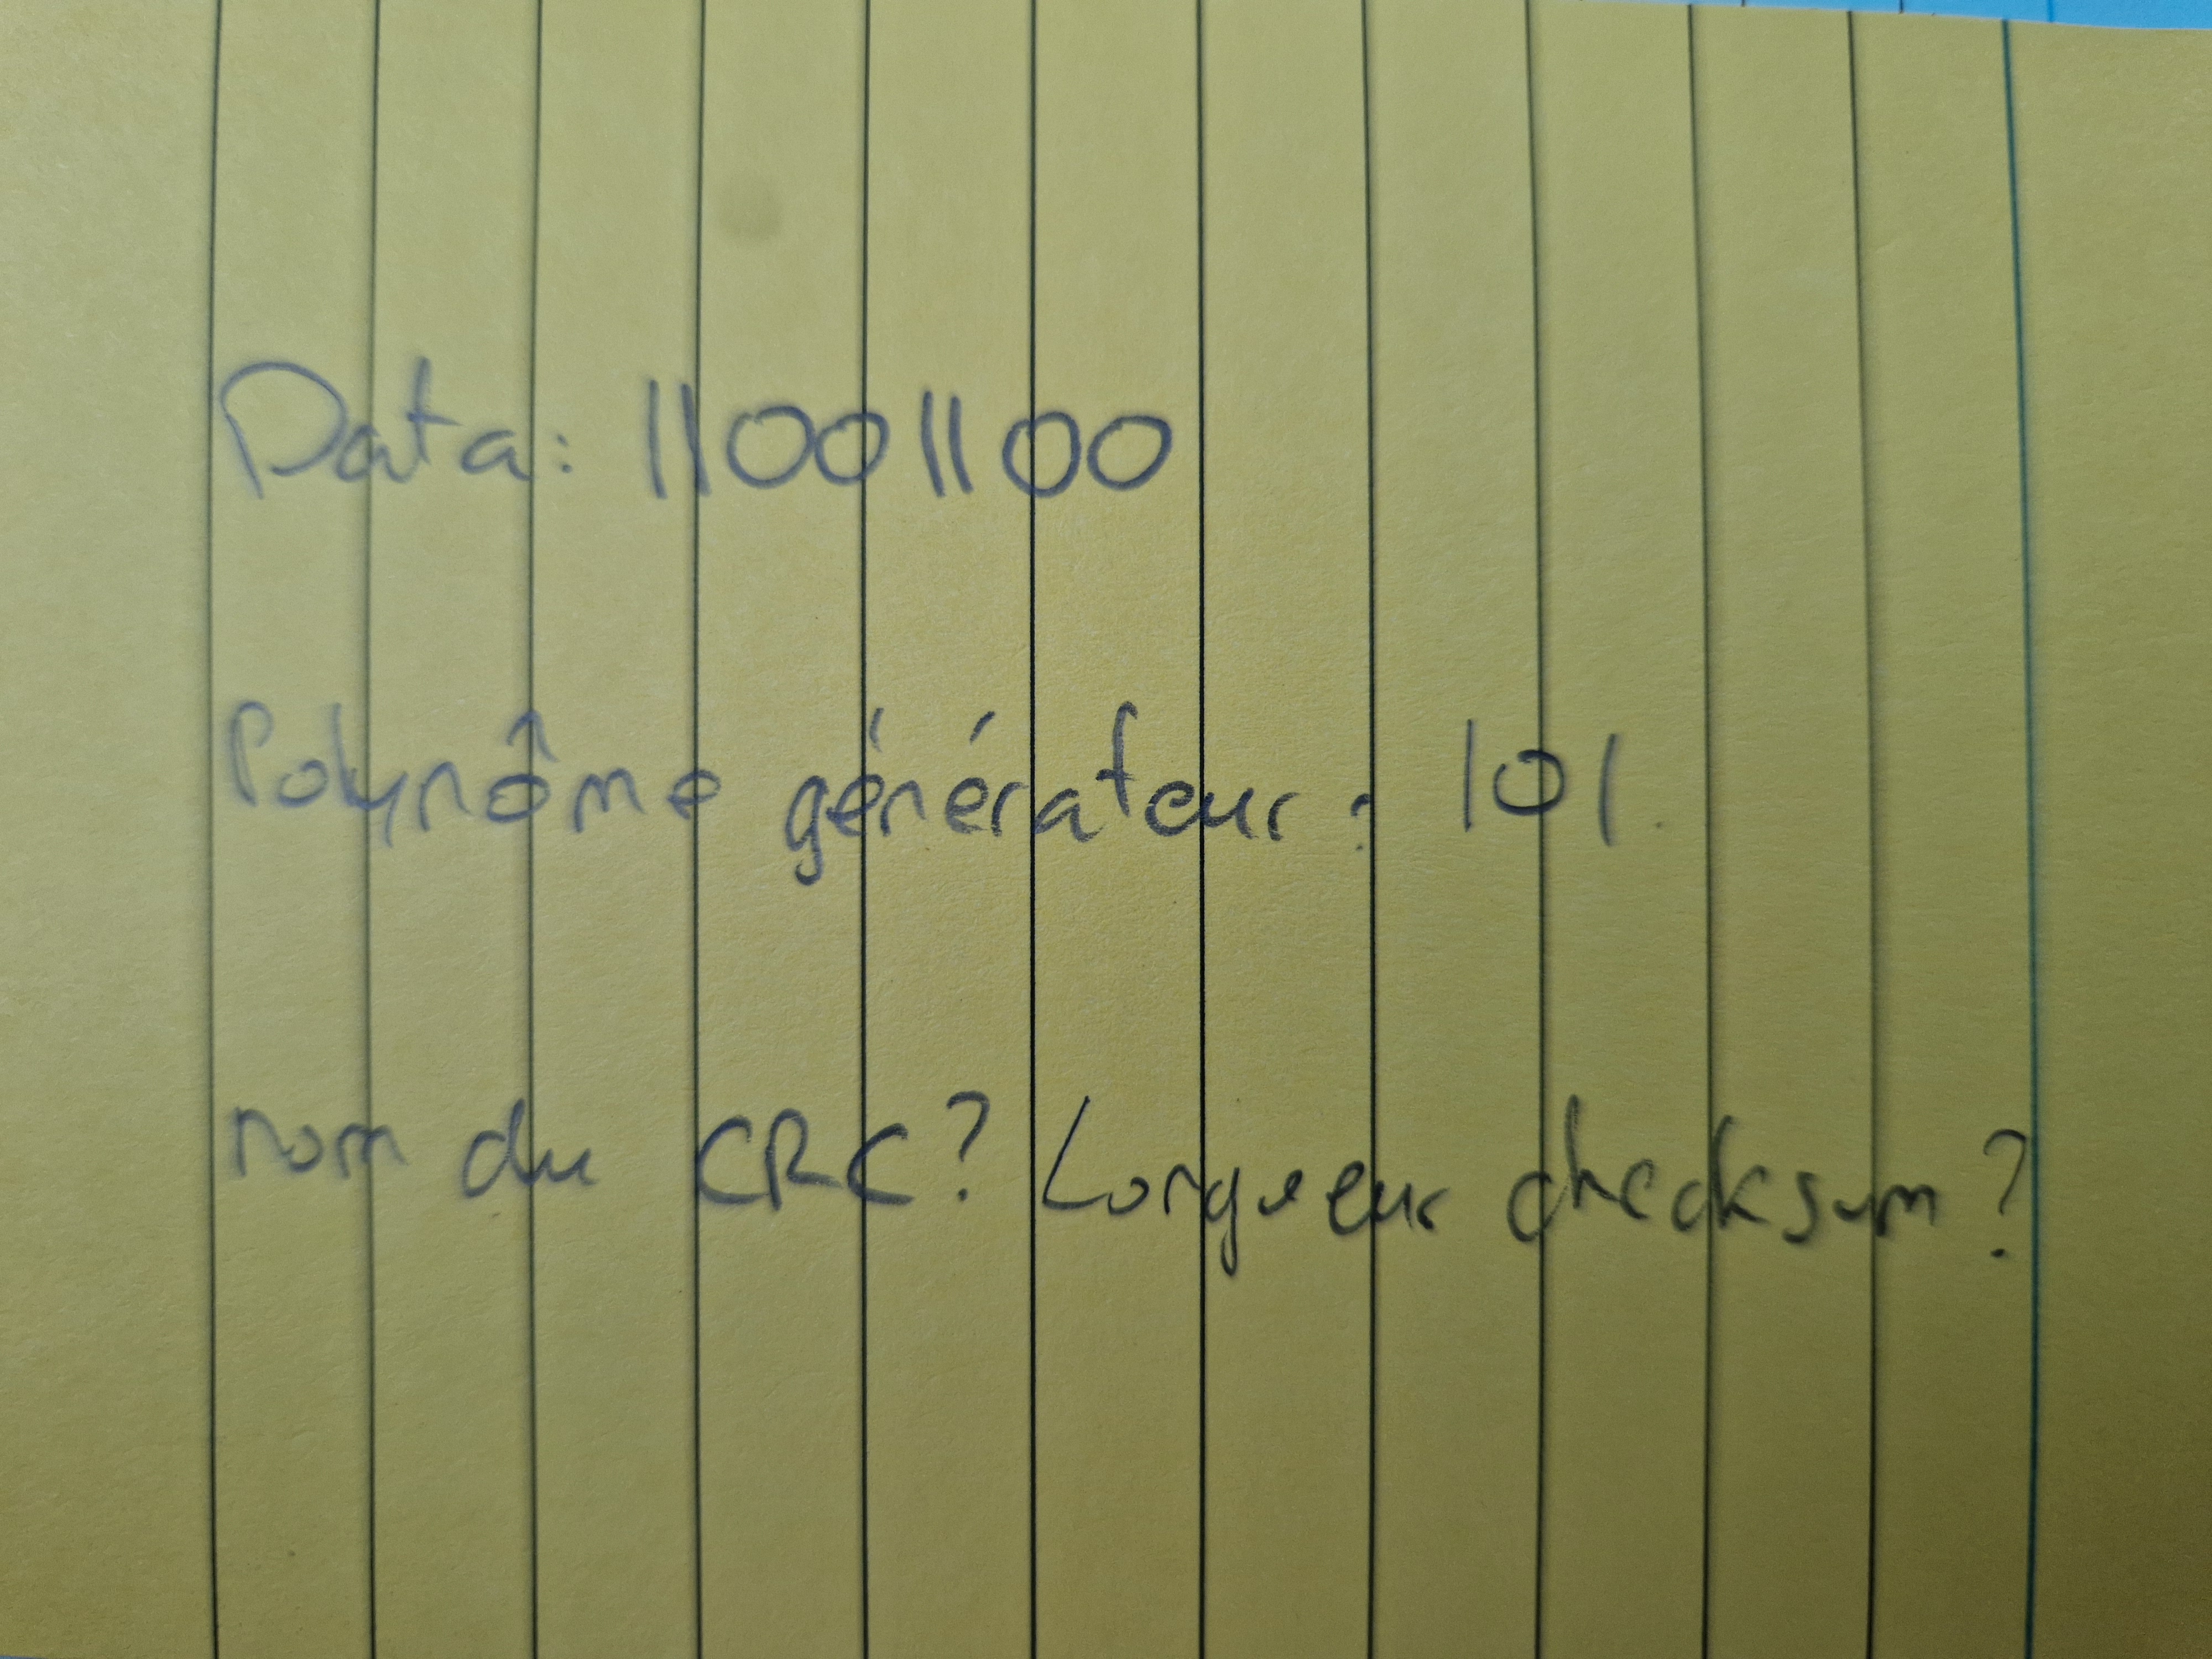 Data: 11001100
Polynôme générateur: 101
nom du CRC? Longueur checksum?